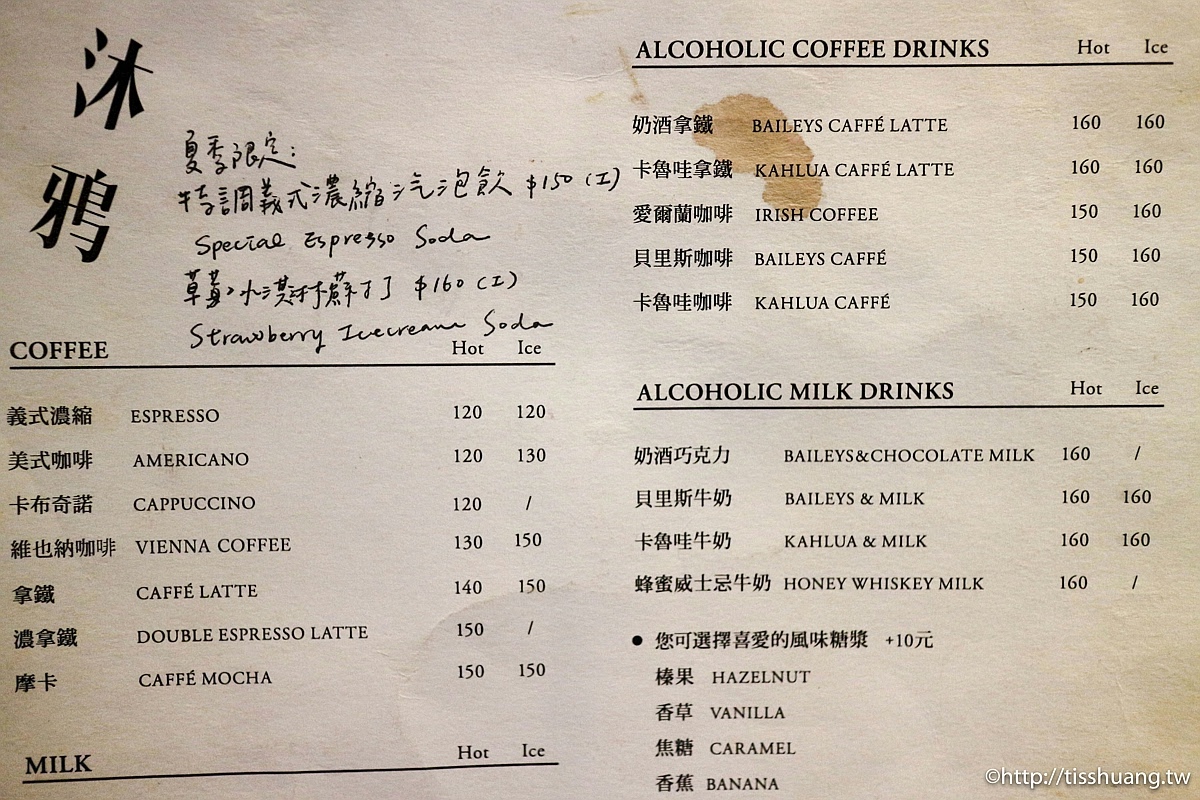 沐鴉
夏季限定:
特調義式濃縮汽泡飲 $150 (I)
Special Espresso Soda
草莓冰淇淋蘇打 $160 (I)
Strawberry Icecream Soda
COFFEE Hot Ice
義式濃縮 ESPRESSO 120 120
美式咖啡 AMERICANO 120 130
卡布奇諾 CAPPUCCINO 120 /
維也納咖啡 VIENNA COFFEE 130 150
拿鐵 CAFFÉ LATTE 140 150
濃拿鐵 DOUBLE ESPRESSO LATTE 150 /
摩卡 CAFFÉ MOCHA 150 150
MILK Hot Ice
ALCOHOLIC COFFEE DRINKS Hot Ice
奶酒拿鐵 BAILEYS CAFFÉ LATTE 160 160
卡魯哇拿鐵 KAHLUA CAFFÉ LATTE 160 160
愛爾蘭咖啡 IRISH COFFEE 150 160
貝里斯咖啡 BAILEYS CAFFÉ 150 160
卡魯哇咖啡 KAHLUA CAFFÉ 150 160
ALCOHOLIC MILK DRINKS Hot Ice
奶酒巧克力 BAILEYS&CHOCOLATE MILK 160 /
貝里斯牛奶 BAILEYS & MILK 160 160
卡魯哇牛奶 KAHLUA & MILK 160 160
蜂蜜威士忌牛奶 HONEY WHISKEY MILK 160 /
● 您可選擇喜愛的風味糖漿 +10元
榛果 HAZELNUT
香草 VANILLA
焦糖 CARAMEL
香蕉 BANANA
©http://tisshuang.tw